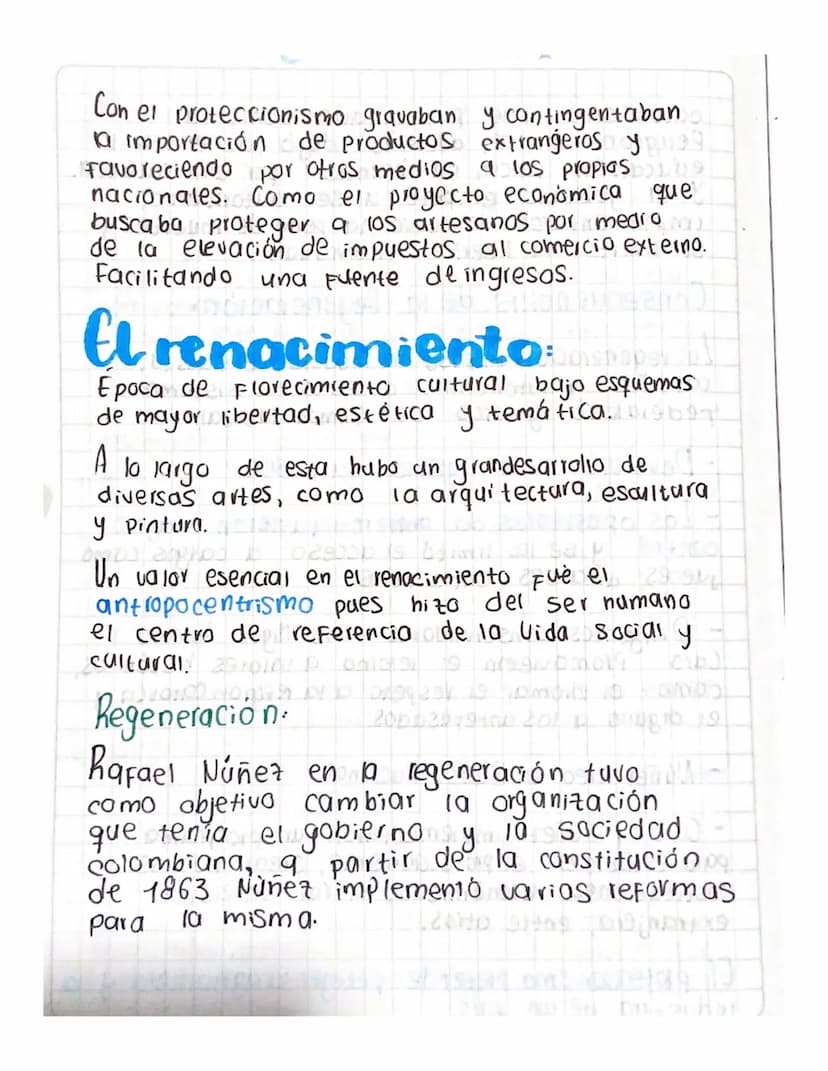 Con el proteccionismo gravaban y contingentaban
la importación de productos extrangeros y
favoreciendo por otros medios a los propios
nacionales. Como el proyecto económica que
buscaba proteger a los artesanos por medio
de la elevación de impuestos al comercio externo.
Facilitando una fuente de ingresos.
El renacimiento:
Época de Florecimiento cultural bajo esquemas
de mayor libertad, estética y temática.
A lo largo de esta hubo un gran desarrollo de
diversas artes, como la arquitectura, escultura
y pintura.
Un valor esencial en el renacimiento fué el
antropocentrismo pues hizo del ser humano
el centro de referencia de la vida social y
cultural.
Regeneración:
Rafael Núñez en la regeneración tuvo
como objetivo cambiar la organización
que tenía el gobierno y la sociedad
colombiana, a partir de la constitución
de 1863 Núñez implementó varios reformas
para la misma.